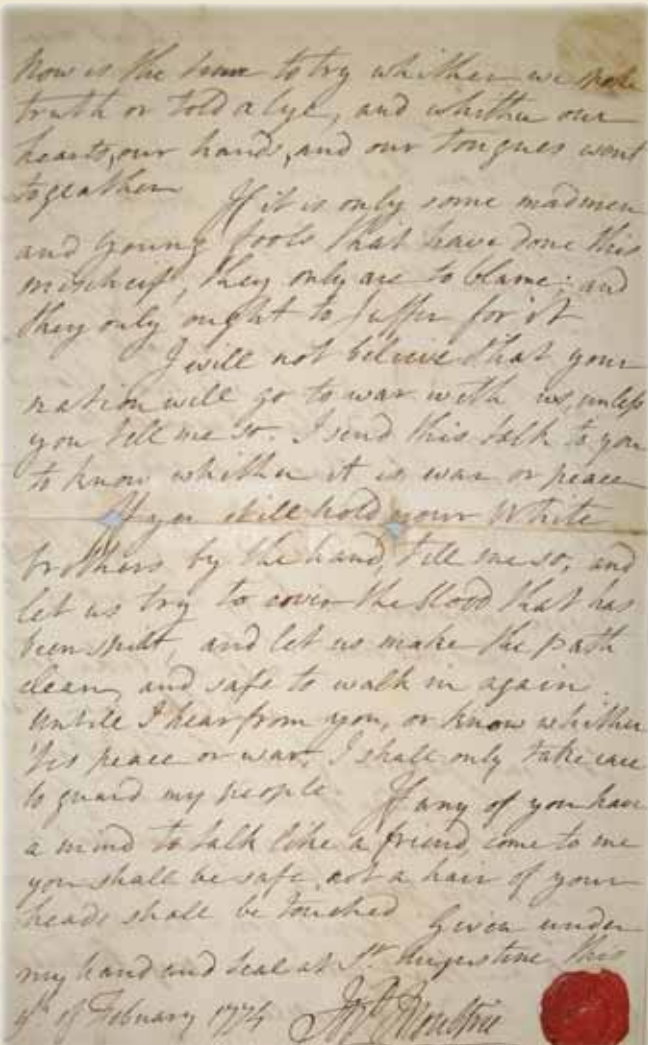 Now is the time to try whither we spoke
truth or told a lye, and whither our
hearts, our hands, and our tongues went
togeather If it is only some madmen
and young fools that have done this
mischeif, they only are to blame; and
they only ought to suffer for it
I will not believe that your
nation will go to war with us, unless
you tell me so. I send this talk to you
to know whither it is war or peace
If you still hold your White
brothers by the hand, tell me so, and
let us try to cover the blood that has
been spilt, and let us make the path
clean, and safe to walk in again.
Untile I hear from you, or know whither
'tis peace or war, I shall only take care
to guard my people. If any of you have
a mind to talk like a friend, come to me
you shall be safe, not a hair of your
heads shall be touched Given under
my hand and seal at St. Augustine this
of February 1774 Jno Moultrie